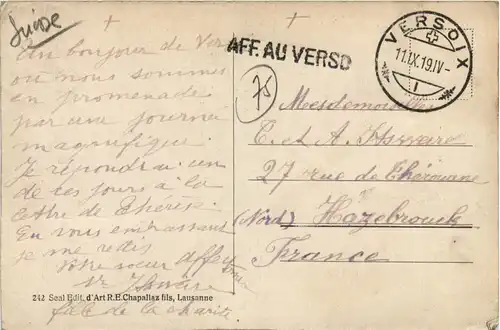 Suisse
Un bonjour de Ver
où nous sommes
en promenade
par une journée
magnifique.
Je répondrai un
de ces jours à la
lettre de Thérèse.
En vous embrassant
je me redis
Votre sœur affec
Fille de la charité
242 Seal Edit. d'Art R.E.Chapallaz fils, Lausanne
AFF. AU VERSO
VERSOIX
11.IX.19.IV-
1
75
Mesdemoiselles
T. et A.
27 rue de Thérouane
(Nord) Hazebrouck
France